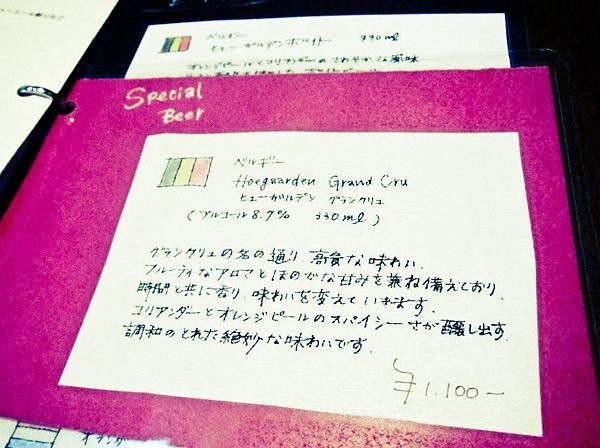 ベルギー
ヒューガルデンホワイト 330ml
オレンジピールとコリアンダーのさわやかな風味
Special
Beer
ベルギー
Hoegaarden Grand Cru
ヒューガルデン グランクリュ
(アルコール 8.7% 330ml)
グランクリュの名の通り、高貴な味わい。
フルーティなアロマとほのかな甘みを兼ね備えており、
時間と共に香り、味わいを変えていきます。
コリアンダーとオレンジピールのスパイシーさが醸し出す、
調和のとれた絶妙な味わいです。
¥1.100-